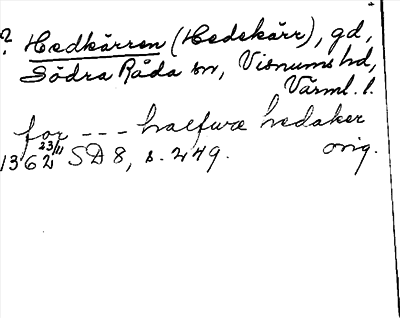 ? Hedkärren (Hedekärr), gd,
Södra Råda sn, Visnums hd,
Värml. l.
for --- halfwæ hedaker
1362 23/11 SD 8, s. 249. orig.